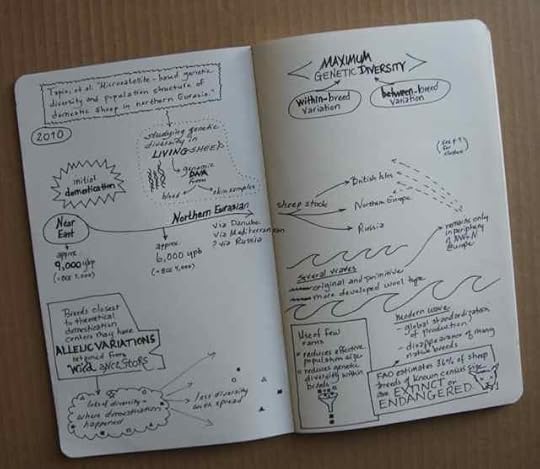 Tapio, et al. "Microsatellite-based genetic
diversity and population structure of
domestic sheep in northern Eurasia."
2010
studying genetic
diversity in
LIVING SHEEP
genomic
DNA
from
blood
skin samples
initial
domestication
Near
East
Northern Eurasian
via Danube
via Mediterranean
? via Russia
approx
9,000 ybp
approx
6,000 ybp
Breeds closest
to theoretical
domestication
centers may have
ALLELIC VARIATIONS
retained from
wild ancestors
lots of diversity
where domestication
happened
less diversity
with spread
MAXIMUM
GENETIC DIVERSITY
within-breed
variation
between-breed
variation
sheep stock
British Isles
Northern Europe
Russia
remains only
in periphery
of NW+N
Europe
Several waves
original and primitive
more developed wool type
Use of few
rams
• reduces effective
population sizes
• reduces genetic
diversity within
breeds
Modern wave
- global standardization
of production
- disappearance of many
native breeds
FAO estimates 36% of sheep
breeds of known census size
are EXTINCT or
ENDANGERED